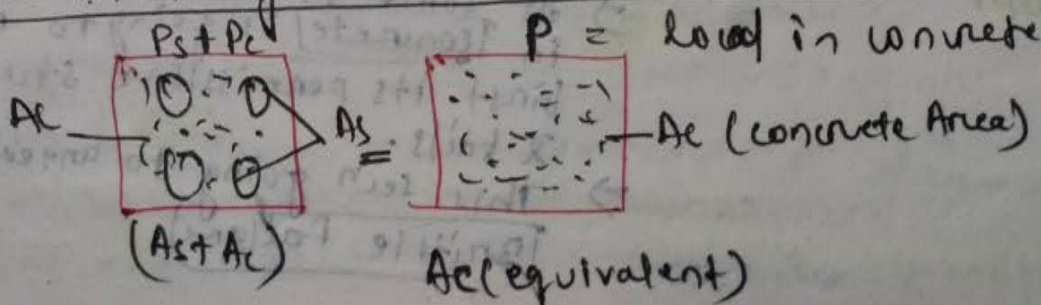 Ps + Pc P = load in concrete
Ac As = Ac (concrete Area)
(As + Ac) Ac (equivalent)